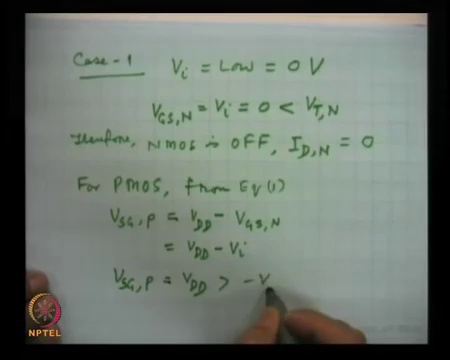 Case-1 Vi = Low = 0 V
VGS,N = Vi = 0 < VT,N
Therefore, NMOS is OFF, ID,N = 0
For PMOS, from Eq(1)
VSG,P = VDD - VGS,N
= VDD - Vi
VSG,P = VDD > -V
NPTEL